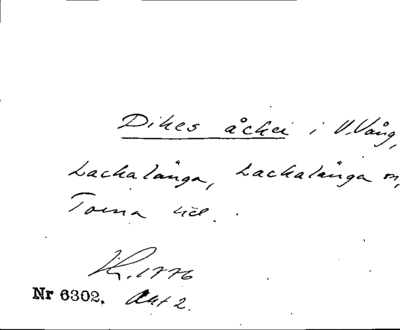 Dikes åcker i V. Vång,
Lackalänga, Lackalänga sn,
Torna hd.
Kr. 1776
Nr 6302. Akt 2.